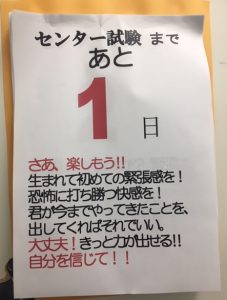 センター試験 まで
あと
1
日
さあ、楽しもう!!
生まれて初めての緊張感を！
恐怖に打ち勝つ快感を！
君が今までやってきたことを、
出してくればそれでいい。
大丈夫！きっと力が出せる!!
自分を信じて！！